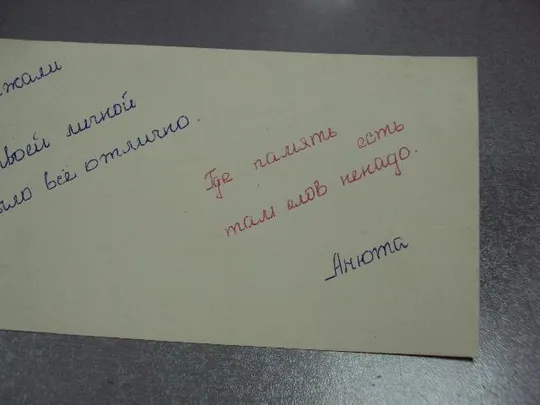 жали
твоей личной
было всё отлично.
Где память есть
там слов ненадо.
Анюта